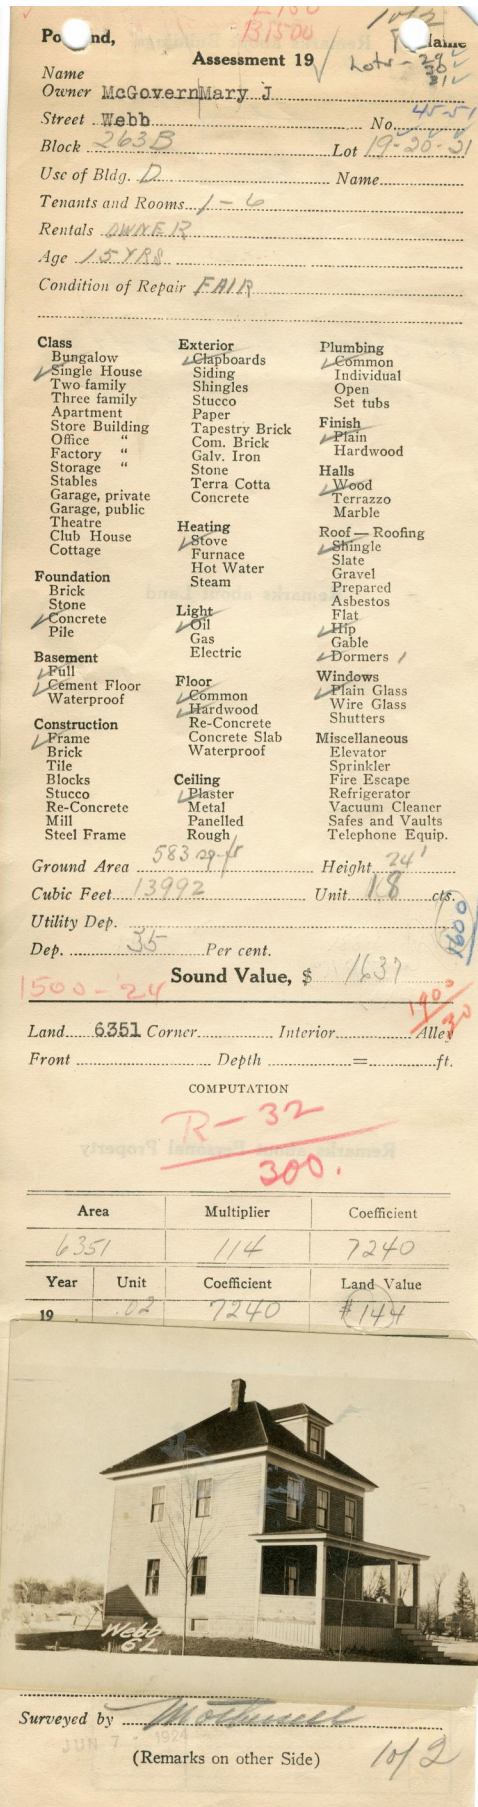 1 of 2
B1500
Assessment 19
Lots - 29
30
31
Name
Owner McGovern Mary J
Street Webb No. 45-51
Block 263B Lot 19-20-21
Use of Bldg. D Name
Tenants and Rooms 1-6
Rentals OWNER
Age 15 YRS
Condition of Repair FAIR
Class
Bungalow
Single House
Two family
Three family
Apartment
Store Building
Office "
Factory "
Storage "
Stables
Garage, private
Garage, public
Theatre
Club House
Cottage
Foundation
Brick
Stone
Concrete
Pile
Basement
Full
Cement Floor
Waterproof
Construction
Frame
Brick
Tile
Blocks
Stucco
Re-Concrete
Mill
Steel Frame
Exterior
Clapboards
Siding
Shingles
Stucco
Paper
Tapestry Brick
Com. Brick
Galv. Iron
Stone
Terra Cotta
Concrete
Heating
Stove
Furnace
Hot Water
Steam
Light
Oil
Gas
Electric
Floor
Common
Hardwood
Re-Concrete
Concrete Slab
Waterproof
Ceiling
Plaster
Metal
Panelled
Rough
Plumbing
Common
Individual
Open
Set tubs
Finish
Plain
Hardwood
Halls
Wood
Terrazzo
Marble
Roof — Roofing
Shingle
Slate
Gravel
Prepared
Asbestos
Flat
Hip
Gable
Dormers 1
Windows
Plain Glass
Wire Glass
Shutters
Miscellaneous
Elevator
Sprinkler
Fire Escape
Refrigerator
Vacuum Cleaner
Safes and Vaults
Telephone Equip.
Ground Area 583 sq-ft Height 24'
Cubic Feet 13992 Unit 18 cts.
Utility Dep.
1600
Dep. 35 Per cent.
Sound Value, $ 1637
1500-'24
1900/30
Land 6351 Corner Interior Alley
Front Depth = ft.
COMPUTATION
R-32
300.
Area Multiplier Coefficient
6351 114 7240
Year Unit Coefficient Land Value
19 .02 7240 $144
Webb
6L
Surveyed by
JUN 7 - 1924
(Remarks on other Side) 1 of 2